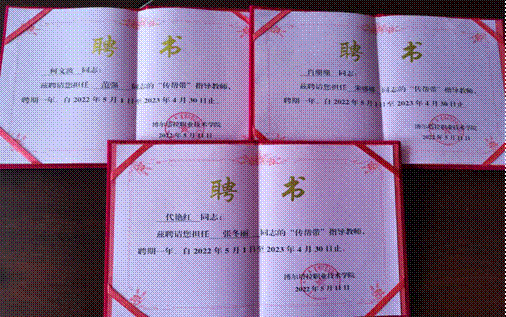 聘 书
同志:
兹聘请您担任 同志的“传帮带”指导教师,
聘期一年,自2022年5月1日至2023年4月30日止。
博尔塔拉职业技术学院
2022年5月11日
聘 书
同志:
兹聘请您担任 同志的“传帮带”指导教师,
聘期一年,自2022年5月1日至2023年4月30日止。
博尔塔拉职业技术学院
2022年5月11日
聘 书
代艳红 同志:
兹聘请您担任 张冬丽 同志的“传帮带”指导教师,
聘期一年,自2022年5月1日至2023年4月30日止。
博尔塔拉职业技术学院
2022年5月11日